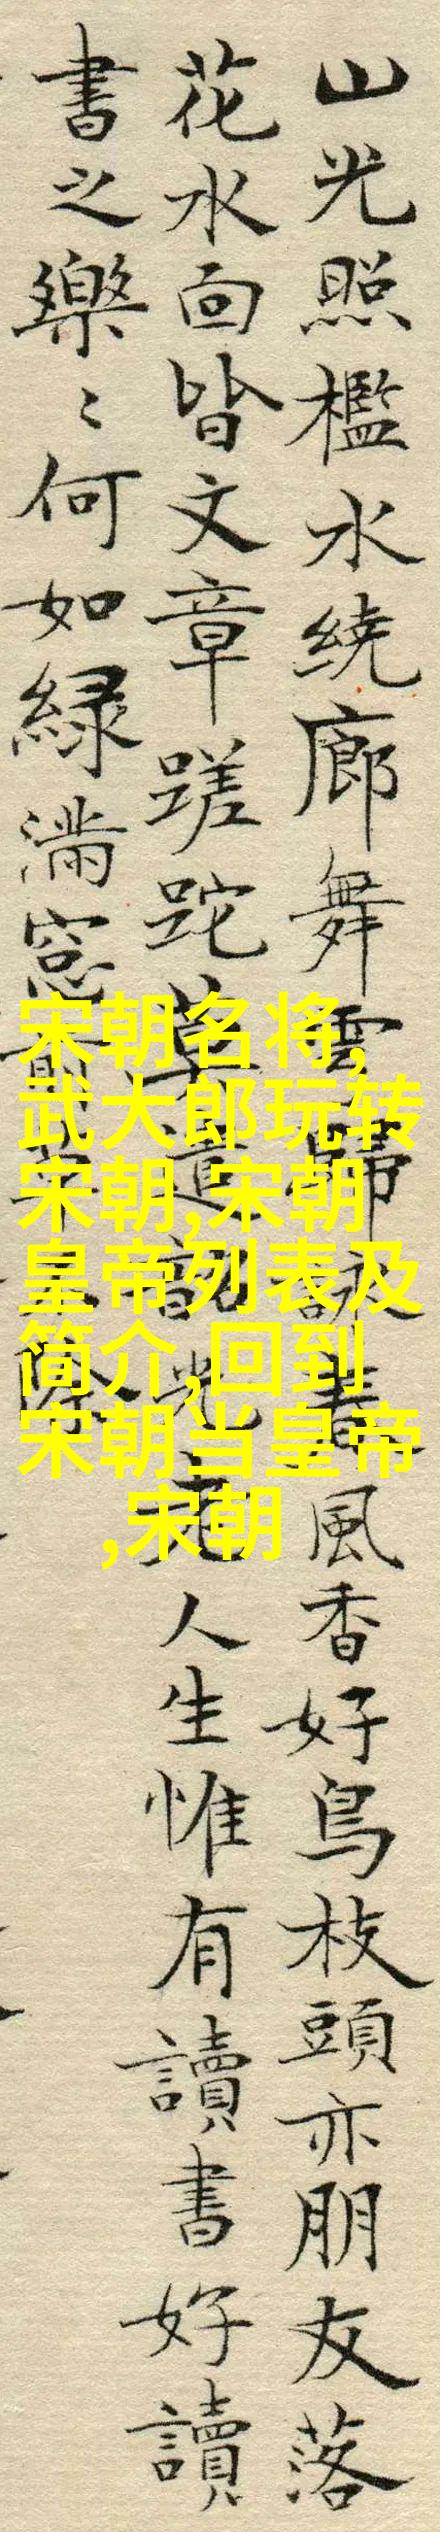 山光照檻水繞廊舞雩歸詠春風香好鳥枝頭亦朋友落
花水面皆文章蹉跎莫遣韶光老人生惟有讀書好讀
書之樂〻何如緑滿窓前草不除
宋朝名将,
武大郎玩转
宋朝,宋朝
皇帝列表及
简介,回到
宋朝当皇帝
,宋朝